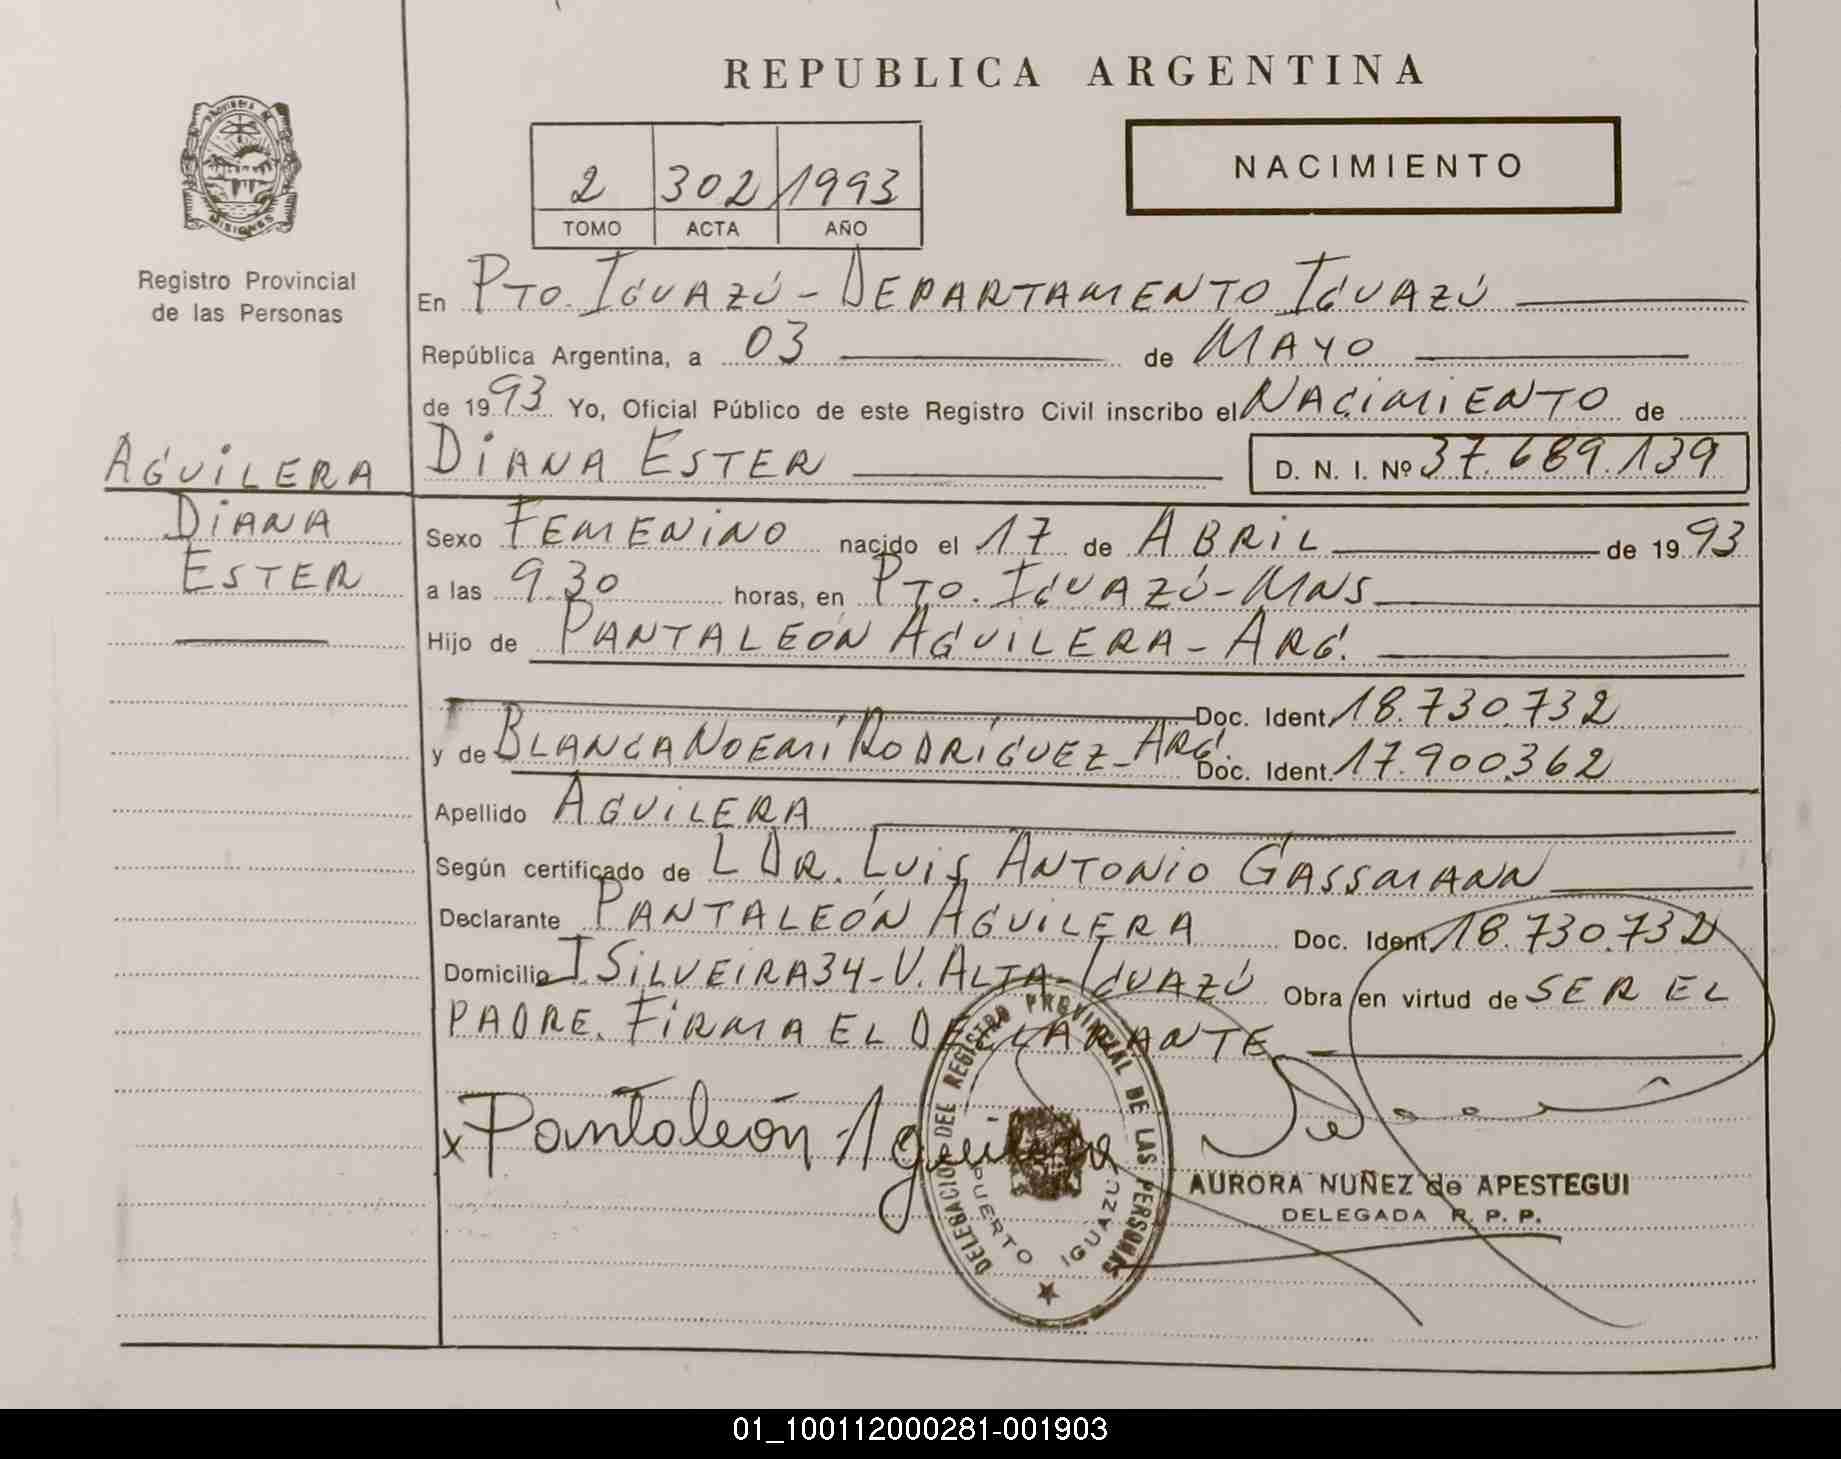 REPUBLICA ARGENTINA
NACIMIENTO
2 302 1993
TOMO ACTA AÑO
PROVINCIA DE MISIONES
Registro Provincial
de las Personas
En PTO. IGUAZÚ - DEPARTAMENTO IGUAZÚ
República Argentina, a 03 de MAYO
de 1993 Yo, Oficial Público de este Registro Civil inscribo el NACIMIENTO de
DIANA ESTER D. N. I. Nº 37.689.139
AGUILERA
DIANA
ESTER
Sexo FEMENINO nacido el 17 de ABRIL de 1993
a las 9.30 horas, en PTO. IGUAZÚ-MNS
Hijo de PANTALEÓN AGUILERA - ARG.
Doc. Ident. 18.730.732
y de BLANCA NOEMÍ RODRÍGUEZ - ARG. Doc. Ident. 17.900.362
Apellido AGUILERA
Según certificado de L DR. LUIS ANTONIO GASSMANN
Declarante PANTALEÓN AGUILERA Doc. Ident. 18.730.732
Domicilio J. SILVEIRA 34-V. ALTA-IGUAZÚ Obra en virtud de SER EL
PADRE. FIRMA EL DECLARANTE
x Pantaleón Aguilera
DELEGACIO DEL REGISTRO PROVINCIAL DE LAS PERSONAS
PUERTO IGUAZU
AURORA NUÑEZ de APESTEGUI
DELEGADA R. P. P.
01_100112000281-001903